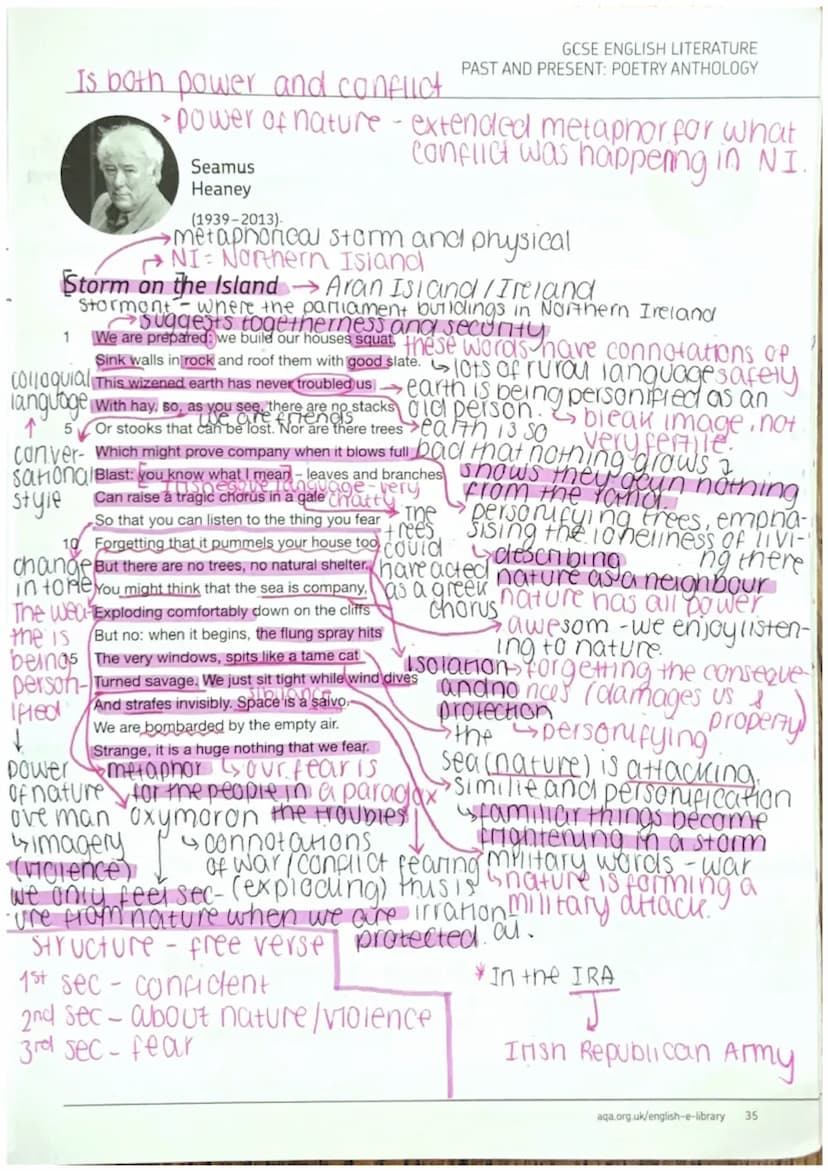 GCSE ENGLISH LITERATURE
PAST AND PRESENT: POETRY ANTHOLOGY
Is both power and conflict
> power of nature - extended metaphor for what
conflict was happening in NI.
Seamus
Heaney
(1939–2013)
metaphorical storm and physical
NI = Northern Island
Storm on the Island → Aran Island / Ireland
Stormont - where the parliament buildings in Northern Ireland
suggests togetherness and security
1 We are prepared: we build our houses squat,
Sink walls in rock and roof them with good slate.
This wizened earth has never troubled us
With hay, so, as you see, there are no stacks
we are friends
5 Or stooks that can be lost. Nor are there trees
Which might prove company when it blows full
Blast: you know what I mean – leaves and branches
chatty
Can raise a tragic chorus in a gale
So that you can listen to the thing you fear
10 Forgetting that it pummels your house too.
But there are no trees, no natural shelter.
You might think that the sea is company,
Exploding comfortably down on the cliffs
But no: when it begins, the flung spray hits
5 The very windows, spits like a tame cat
Turned savage. We just sit tight while wind dives
sibilance
And strafes invisibly. Space is a salvo.
We are bombarded by the empty air.
Strange, it is a huge nothing that we fear.
colloquial
language
conver-
sational
style
change
in tone
The wea-
the is
being
person-
ified
power
of nature
ove man
↳ imagery
(violence)
we only feel sec-
ure from nature when we are
protected.
these words have connotations of
safety
↳ lots of rural language
→ earth is being personified as an
old person. ↳ bleak image, not
very fertile.
→ earth is so
bad that nothing grows &
shows they gain nothing
from the land.
personifying trees, empha-
sising the loneliness of livi-
ng there
↳ describing
nature as a neighbour
nature has all power
the
trees
could
have acted
as a greek
chorus
awesom - we enjoy listen-
ing to nature.
Isolation
and no
protection
→ forgetting the conseque-
nces (damages us &
property)
↳ personifying
the
sea (nature) is attacking.
similie and personification
↳ familiar things become
frightening in a storm
military words - war
↳ nature is forming a
military attack.
metaphor
for the people in
the troubles
↳ our fear is
a paradox
oxymoron
↳ connotations
of war/conflict
(exploding)
fearing
this is
irration-
al.
structure - free verse
1st sec - confident
2nd sec - about nature/violence
3rd sec - fear
* In the IRA
Irish Republican Army
aqa.org.uk/english-e-library 35